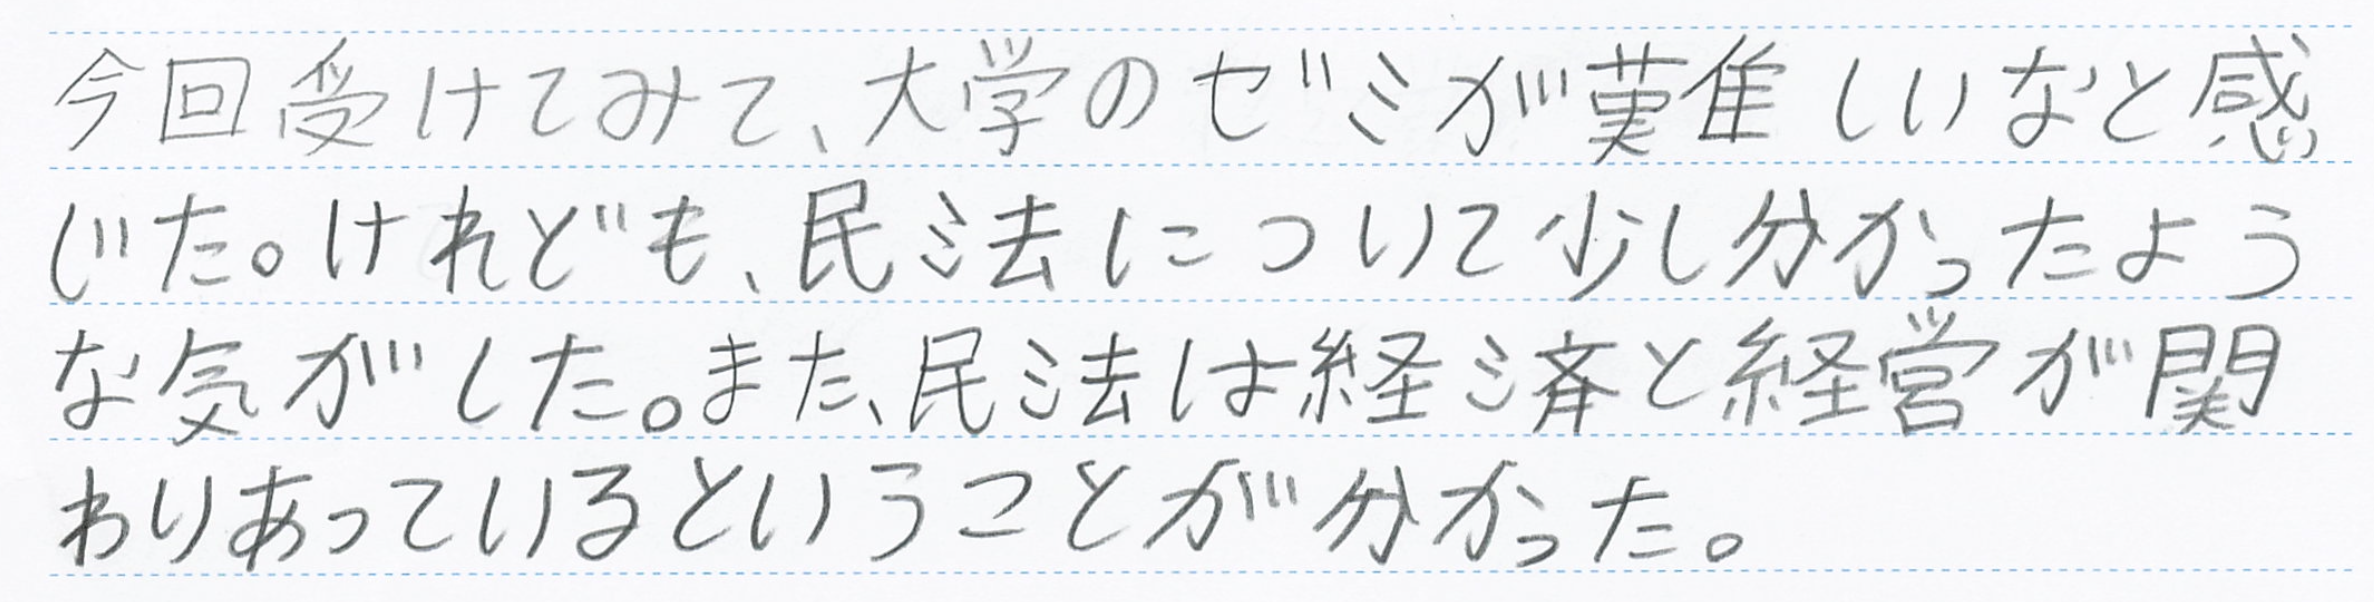 今回受けてみて、大学のゼミが難しいなと感
じた。けれども、民法について少し分かったよう
な気がした。また、民法は経済と経営が関
わりあっているということが分かった。